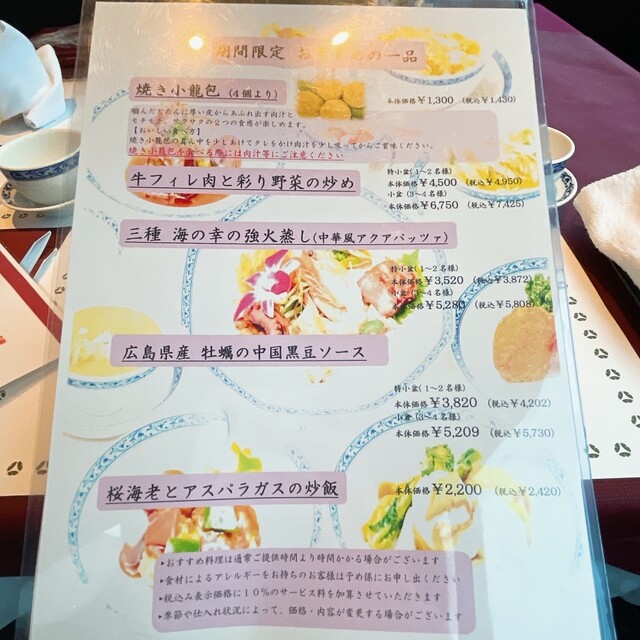 期間限定 おすすめの一品
焼き小龍包 (4個より)
本体価格¥1,300 (税込¥1,430)
噛んだとたんに厚い皮からあふれ出す肉汁と
モチモチ、サクサクの2つの食感が楽しめます。
【おいしい食べ方】
焼き小龍包の真ん中を少しあけてタレをかけ肉汁を少し吸ってからご賞味ください。
焼き小龍包を食べる際には肉汁等にご注意ください
牛フィレ肉と彩り野菜の炒め
特小盆(1~2名様)
本体価格¥4,500 (税込¥4,950)
小盆(3~4名様)
本体価格¥6,750 (税込¥7,425)
三種 海の幸の強火蒸し(中華風アクアパッツァ)
特小盆(1~2名様)
本体価格¥3,520 (税込¥3,872)
小盆(3~4名様)
本体価格¥5,280 (税込¥5,808)
広島県産 牡蠣の中国黒豆ソース
特小盆(1~2名様)
本体価格¥3,820 (税込¥4,202)
小盆(3~4名様)
本体価格¥5,209 (税込¥5,730)
桜海老とアスパラガスの炒飯
本体価格¥2,200 (税込¥2,420)
▸おすすめ料理は通常ご提供時間より時間かかる場合がございます
▸食材によるアレルギーをお持ちのお客様は予め係にお申し出ください
▸税込み表示価格に10%のサービス料を加算させていただきます
▸季節や仕入れ状況によって、価格・内容が変更する場合がございます